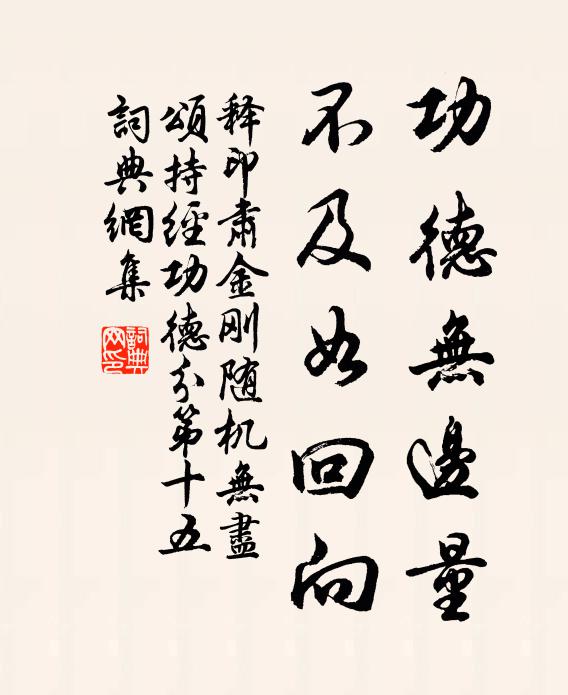 功德無邊量
不及如回向
释印肃金刚随机無盡
頌持經功德分第十五
詞典網集
詞典网印